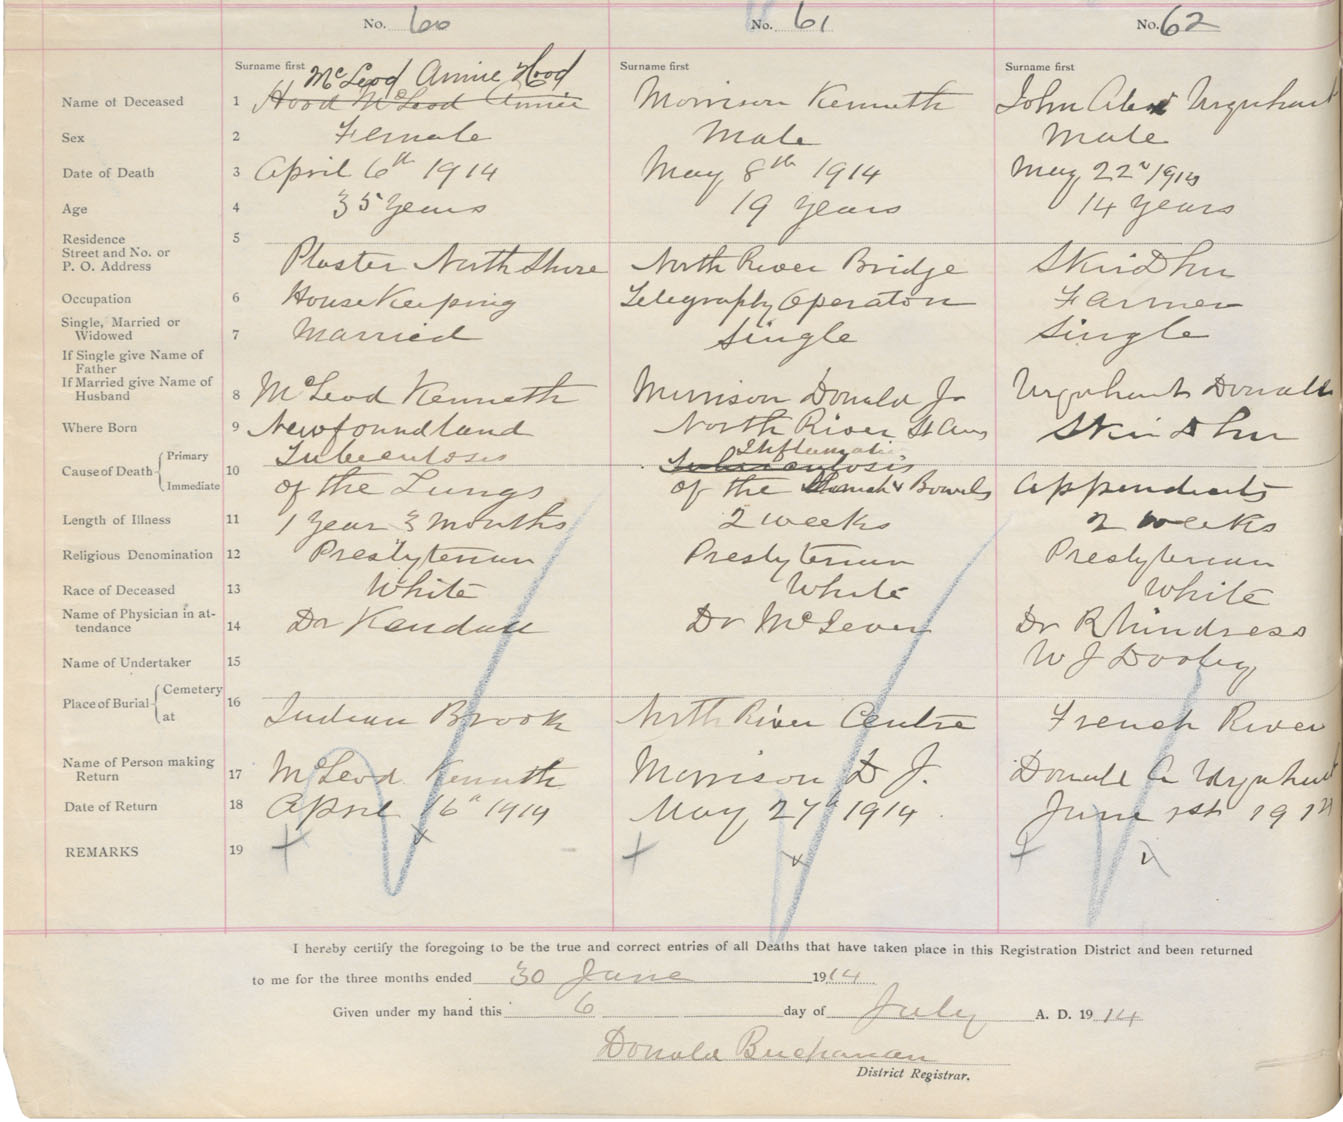 No. 60 No. 61 No. 62
Surname first Surname first Surname first
McLeod Annie Hood
Name of Deceased 1 Hood McLeod Annie Morrison Kenneth John Alex Urquhart
Sex 2 Female Male Male
Date of Death 3 April 6th 1914 May 8th 1914 May 22n 1914
Age 4 35 years 19 years 14 years
Residence 5
Street and No. or
P. O. Address Plaster North Shore North River Bridge Skir Dhu
Occupation 6 HouseKeeping Telegraphy Operator Farmer
Single, Married or
Widowed 7 Married Single Single
If Single give Name of
Father
If Married give Name of
Husband 8 McLeod Kenneth Morrison Donald J. Urquhart Donald
Where Born 9 Newfoundland North River St Anns Skir Dhu
Cause of Death Primary 10 Tuberculosis Inflamatio Tuberculosis
Immediate of the Lungs of the Stomach & Bowels Appendicits
Length of Illness 11 1 year 3 months 2 weeks 2 weeks
Religious Denomination 12 Presbyterian Presbyterian Presbyterian
Race of Deceased 13 White White White
Name of Physician in at-
tendance 14 Dr Kendall Dr McIever Dr Rhindress
Name of Undertaker 15 W J Dooley
Place of Burial Cemetery 16
at Indian Brook North River Centre French River
Name of Person making
Return 17 McLeod Kenneth Morrison D J. Donald A Urquhart
Date of Return 18 April 16th 1914 May 27th 1914 June 1st 1914
REMARKS 19
I hereby certify the foregoing to be the true and correct entries of all Deaths that have taken place in this Registration District and been returned
to me for the three months ended 30 June 1914
Given under my hand this 6 day of July A. D. 1914
Donald Buchanan
District Registrar.